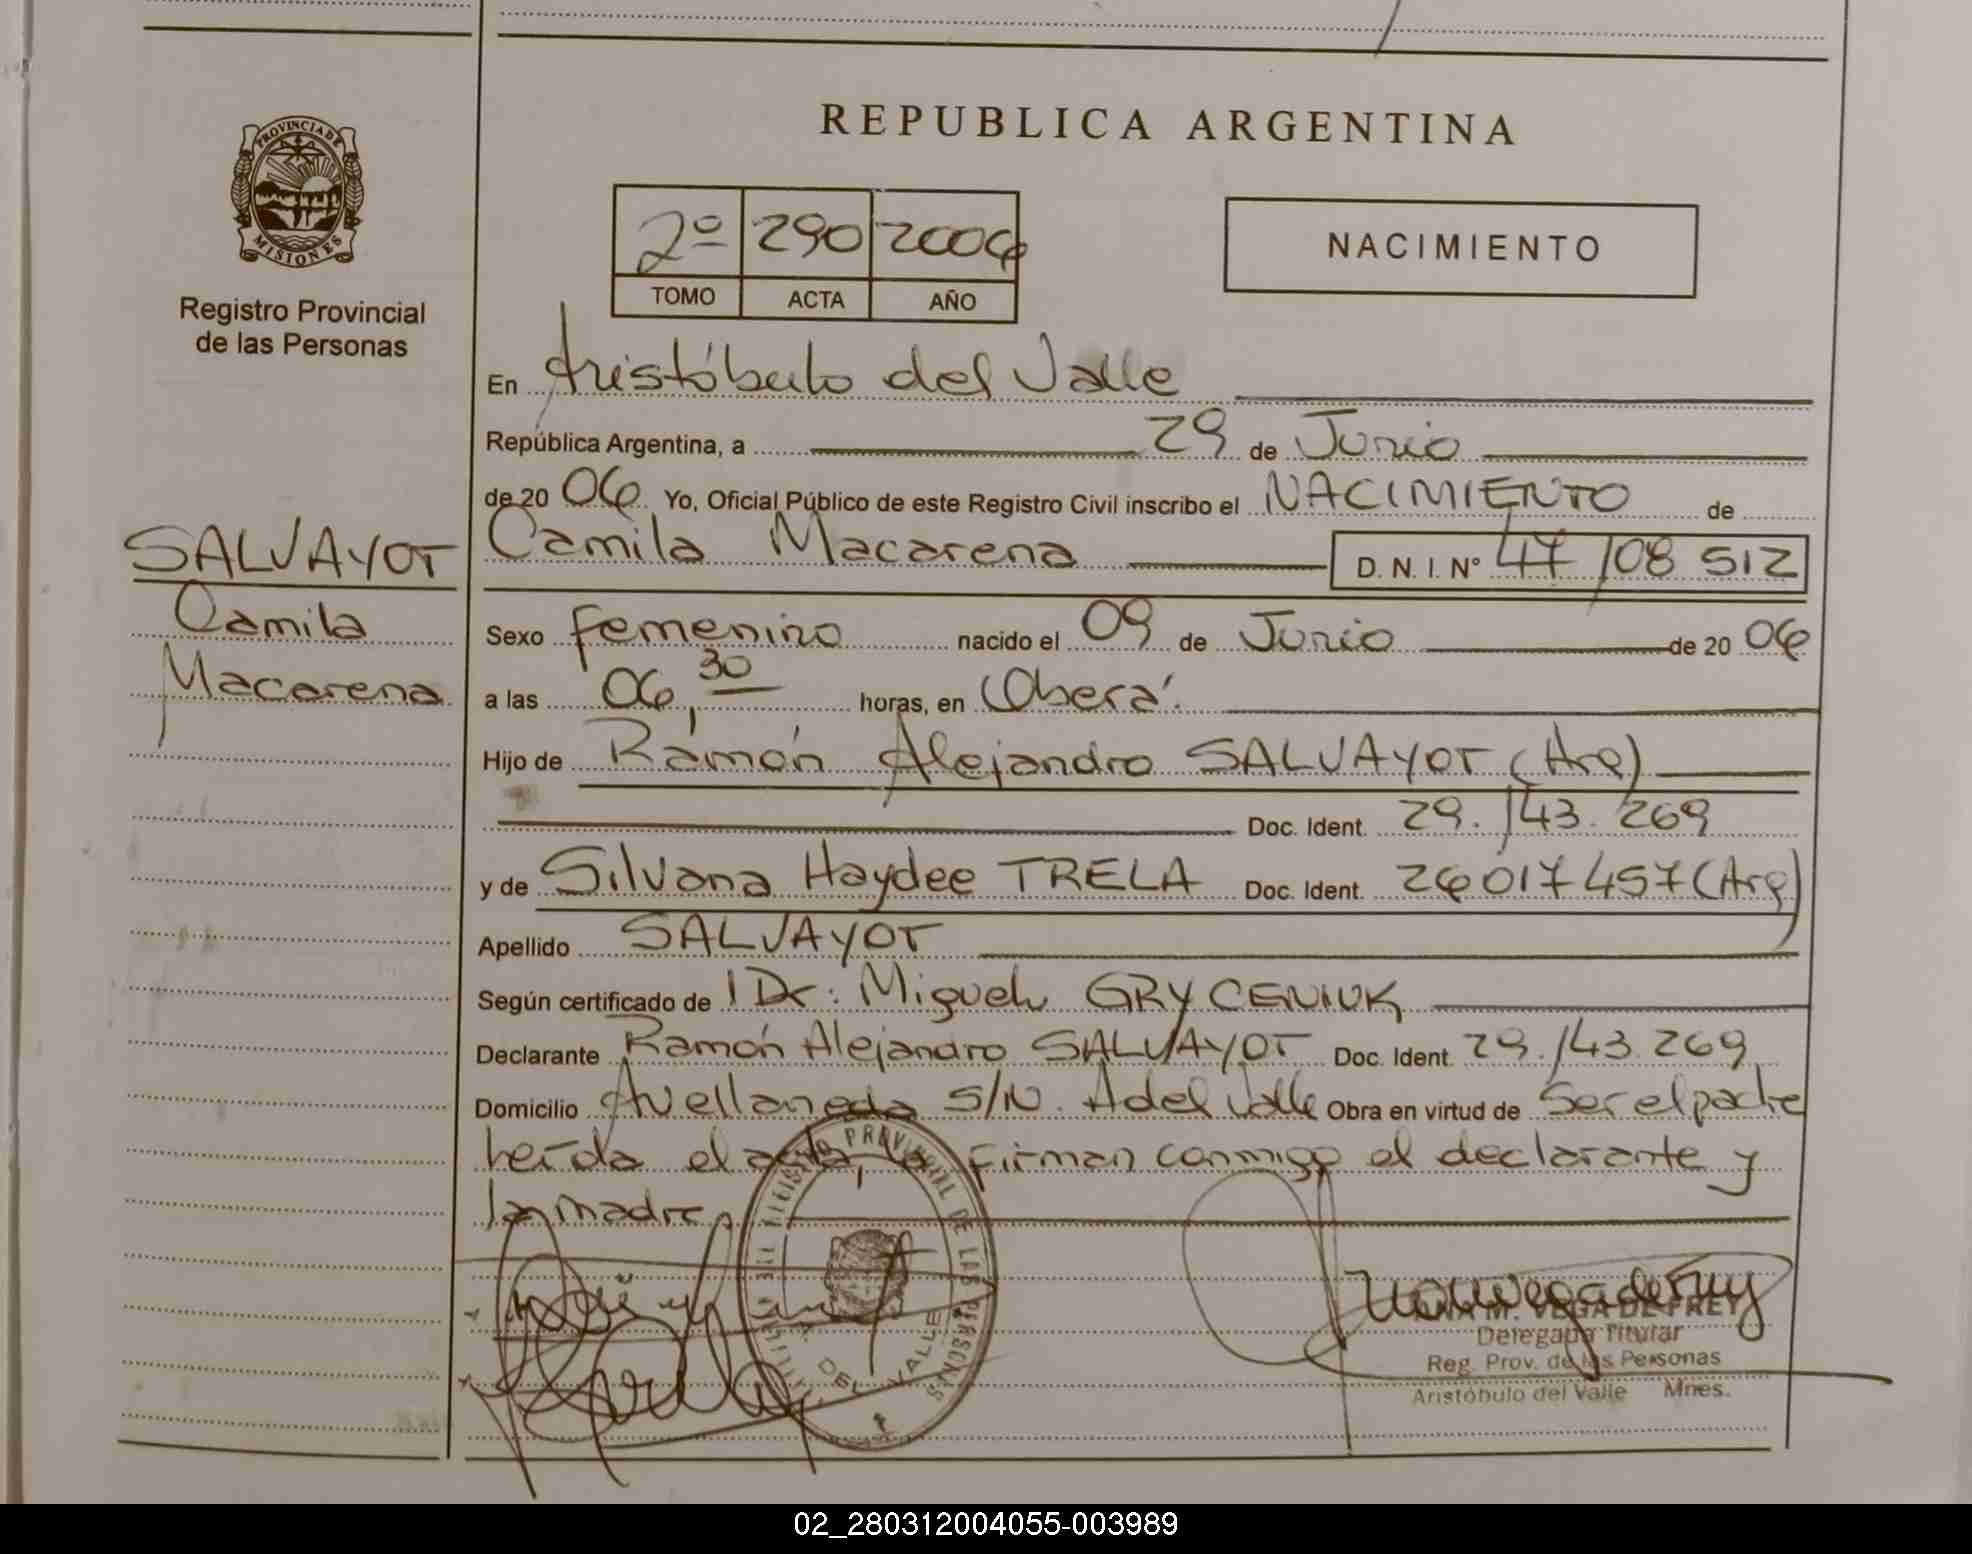 REPUBLICA ARGENTINA
PROVINCIA DE
MISIONES
Registro Provincial
de las Personas
2º 290 2006
TOMO ACTA AÑO
NACIMIENTO
En Aristóbulo del Valle
República Argentina, a 29 de Junio
de 20 06 Yo, Oficial Público de este Registro Civil inscribo el NACIMIENTO de
SALVAYOT
Camila
Macarena
Camila Macarena D. N. I. Nº 47 108 512
Sexo Femenino nacido el 09 de Junio de 20 06
a las 06,30 horas, en Oberá.
Hijo de Ramón Alejandro SALVAYOT (Arg)
Doc. Ident. 29.143.269
y de Silvana Haydee TRELA Doc. Ident. 26017457 (Arg)
Apellido SALVAYOT
Según certificado de Dr: Miguel GRYCENIUK
Declarante Ramón Alejandro SALVAYOT Doc. Ident. 29.143.269
Domicilio Avellaneda S/N. A del Valle Obra en virtud de Ser el padre
leída el acta, la firman conmigo el declarante y
la madre
PROVINCIAL DE LAS PERSONAS
DEL VALLE
M. VEGA DE FREY
Delegada Titular
Reg. Prov. de las Personas
Aristóbulo del Valle Mnes.
02_280312004055-003989